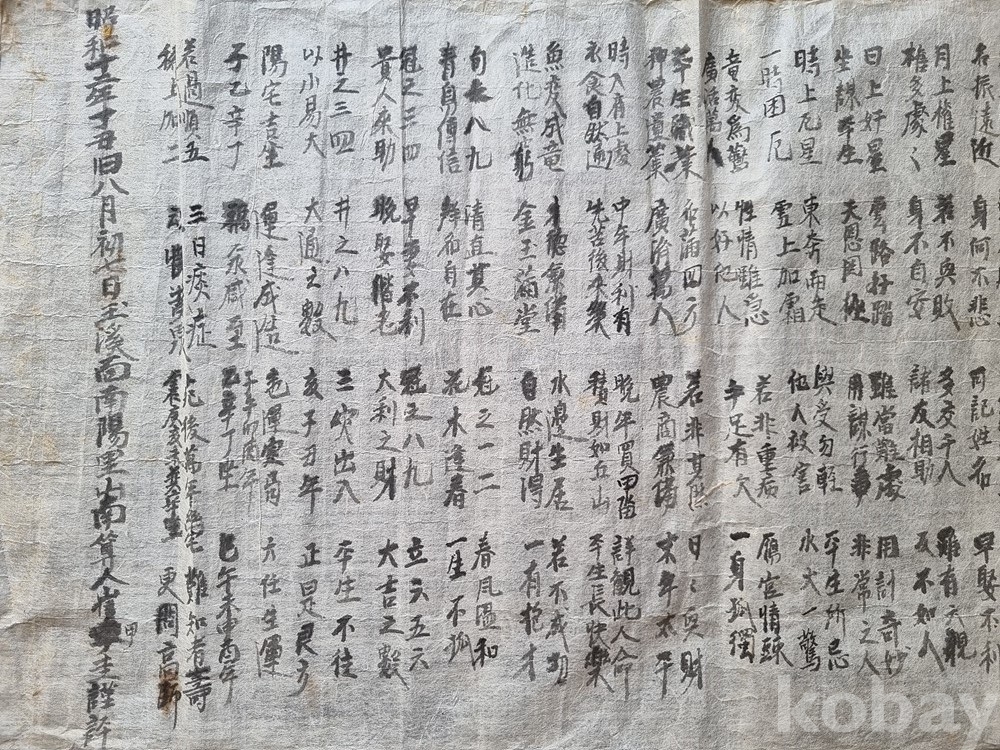 名振遠近 身何不悲 可記姓名 早娶不利
月上權星 若不興敗 多交千人 雖有天親
權多處々 身不自安 諸友相助 反不如人
日上好星 雲路好踏 雖當難處 用計奇妙
坐謀平生 天恩罔極 用謀行事 非常之人
時上厄星 東奔西走 與受勿輕 平生所忌
一時困厄 雪上加霜 他人被害 水火一驚
竜变爲鱉 性情雖急 若非重病 雁宮情疎
廣活萬人 以好化人 手足有欠 一身孤獨
平生職業 四方 若非其然 日々興財
神農遺業 廣濟萬人 農商兼備 末年太平
時入有上處 中年財利有 晩年買田畓 詳観此人命
衣食自然通 先苦後来樂 積財如丘山 平生長快樂
魚变成竜 才德兼備 水邊生居 若不成功
造化無窮 金玉滿堂 自然財得 一有抱才
旬之八九 清直其心 冠之一二 春風温和
春自傳信 舞而自在 花木逢春 一生不孤
冠之三四 早娶不利 冠之八九 立云五六
貴人来助 晩娶偕老 大利之財 大吉之數
井之三四 井之八九 三灾出入 平生不佳
以小易大 大通之數 亥子丑年 正是艮方
陽宅吉坐 運逢成造 運 六任坐運
子乙辛丁 至 乙辛丁坐 巳午未申酉年
若過順五 三日痰症 危後萬年 難知者壽
上加二 更問高師
昭和十三年 八月初七日玉溪面南陽里山南算人崔 甲 主謹評
kobay